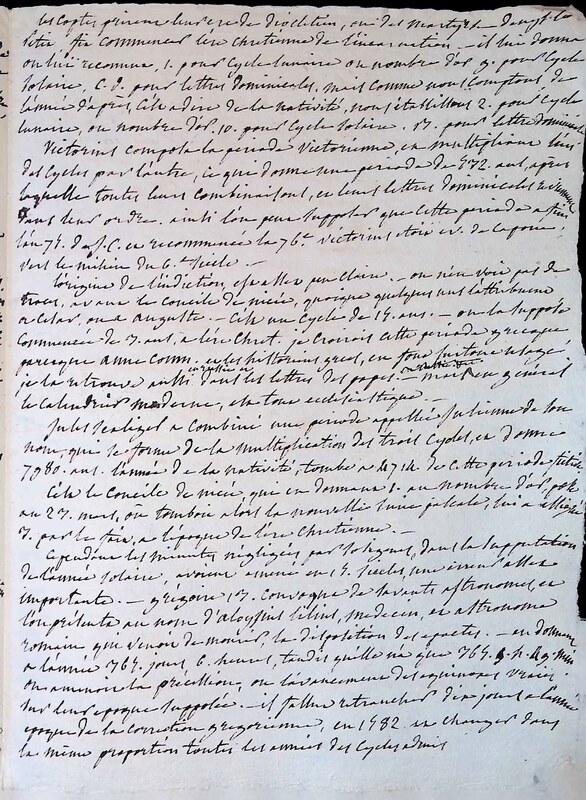 les Coptes prirent leur ere de dioclétien, ou des martyrs
petit fit commencer l'ère chrétienne de l'incarnation - il lui donna
ou lui reconnut 1. pour Cycle lunaire ou nombre d'or 9. pour Cycle
solaire, C. d. pour lettres dominicales, mais comme nous comptons de
l'année d'après, c'est à dire de la nativité, nous établissons 2. pour Cycle
lunaire, ou nombre d'or, 10. pour Cycle solaire. 17. pour lettre dominic
Victorius composa la periode victorienne, en multipliant leurs
des Cycles par l'autre, ce qui donne une periode de 532. ans, après
laquelle toutes leurs combinaisons, et leurs lettres dominicales
dans leur ordre. ainsi l'on peut supposer que cette periode a fini
l'an 75. de J. C. et recommencé la 76e. victorius étoit
vers le milieu du 6.me siècle. -
l'origine de l'indiction, est assez peu claire. - on n'en voit pas de
traces, avant le concile de nicée, quoique quelques uns l'attribuent
à César, ou à auguste. - C'est un Cycle de 15. ans. - on la suppose
commencée de 3. ans, à l'ère Chret. je croirois cette periode grecque
parceque anne Comn. et les historiens grecs, en font surtout usage,
je la retrouve aussi dans les lettres des papes. - mais en général
le calendrier moderne, est tout ecclésiastique. -
Jules Scaliger a combiné une periode appellée Julienne de son
nom, qui se forme de la multiplication des trois Cycles, et donne
7980. ans. l'année de la nativité, tombe à 4714 de cette periode
C'est le Concile de nicée qui en donnant 1. au nombre d'or
au 23. mars, où tomboit alors la nouvelle lune pascale, lui a
3. par le fait, à l'époque de l'ère Chrétienne. -
Cependant les minutes négligées par Sosigenes, dans la supputation
de l'année solaire, avoient amené en 15. siècles, une erreur assez
importante. - gregoire 13. convoqua de savants astronomes, et
l'on présenta au nom d'aloysius lilius, medecin, et astronome
romain qui venoit de mourir, la disposition des epactes. - en donnant
à l'année 365. jours, 6. heures, tandis qu'elle n'a que 365. 5. h. 49 min
on amenoit la précession, ou l'avancement des equinoxes vrais
sur leur epoque supposée. - il fallut retrancher dix jours à l'année
epoque de la correction gregorienne, en 1582 et changer dans
la même proportion toutes les années des Cycles admis